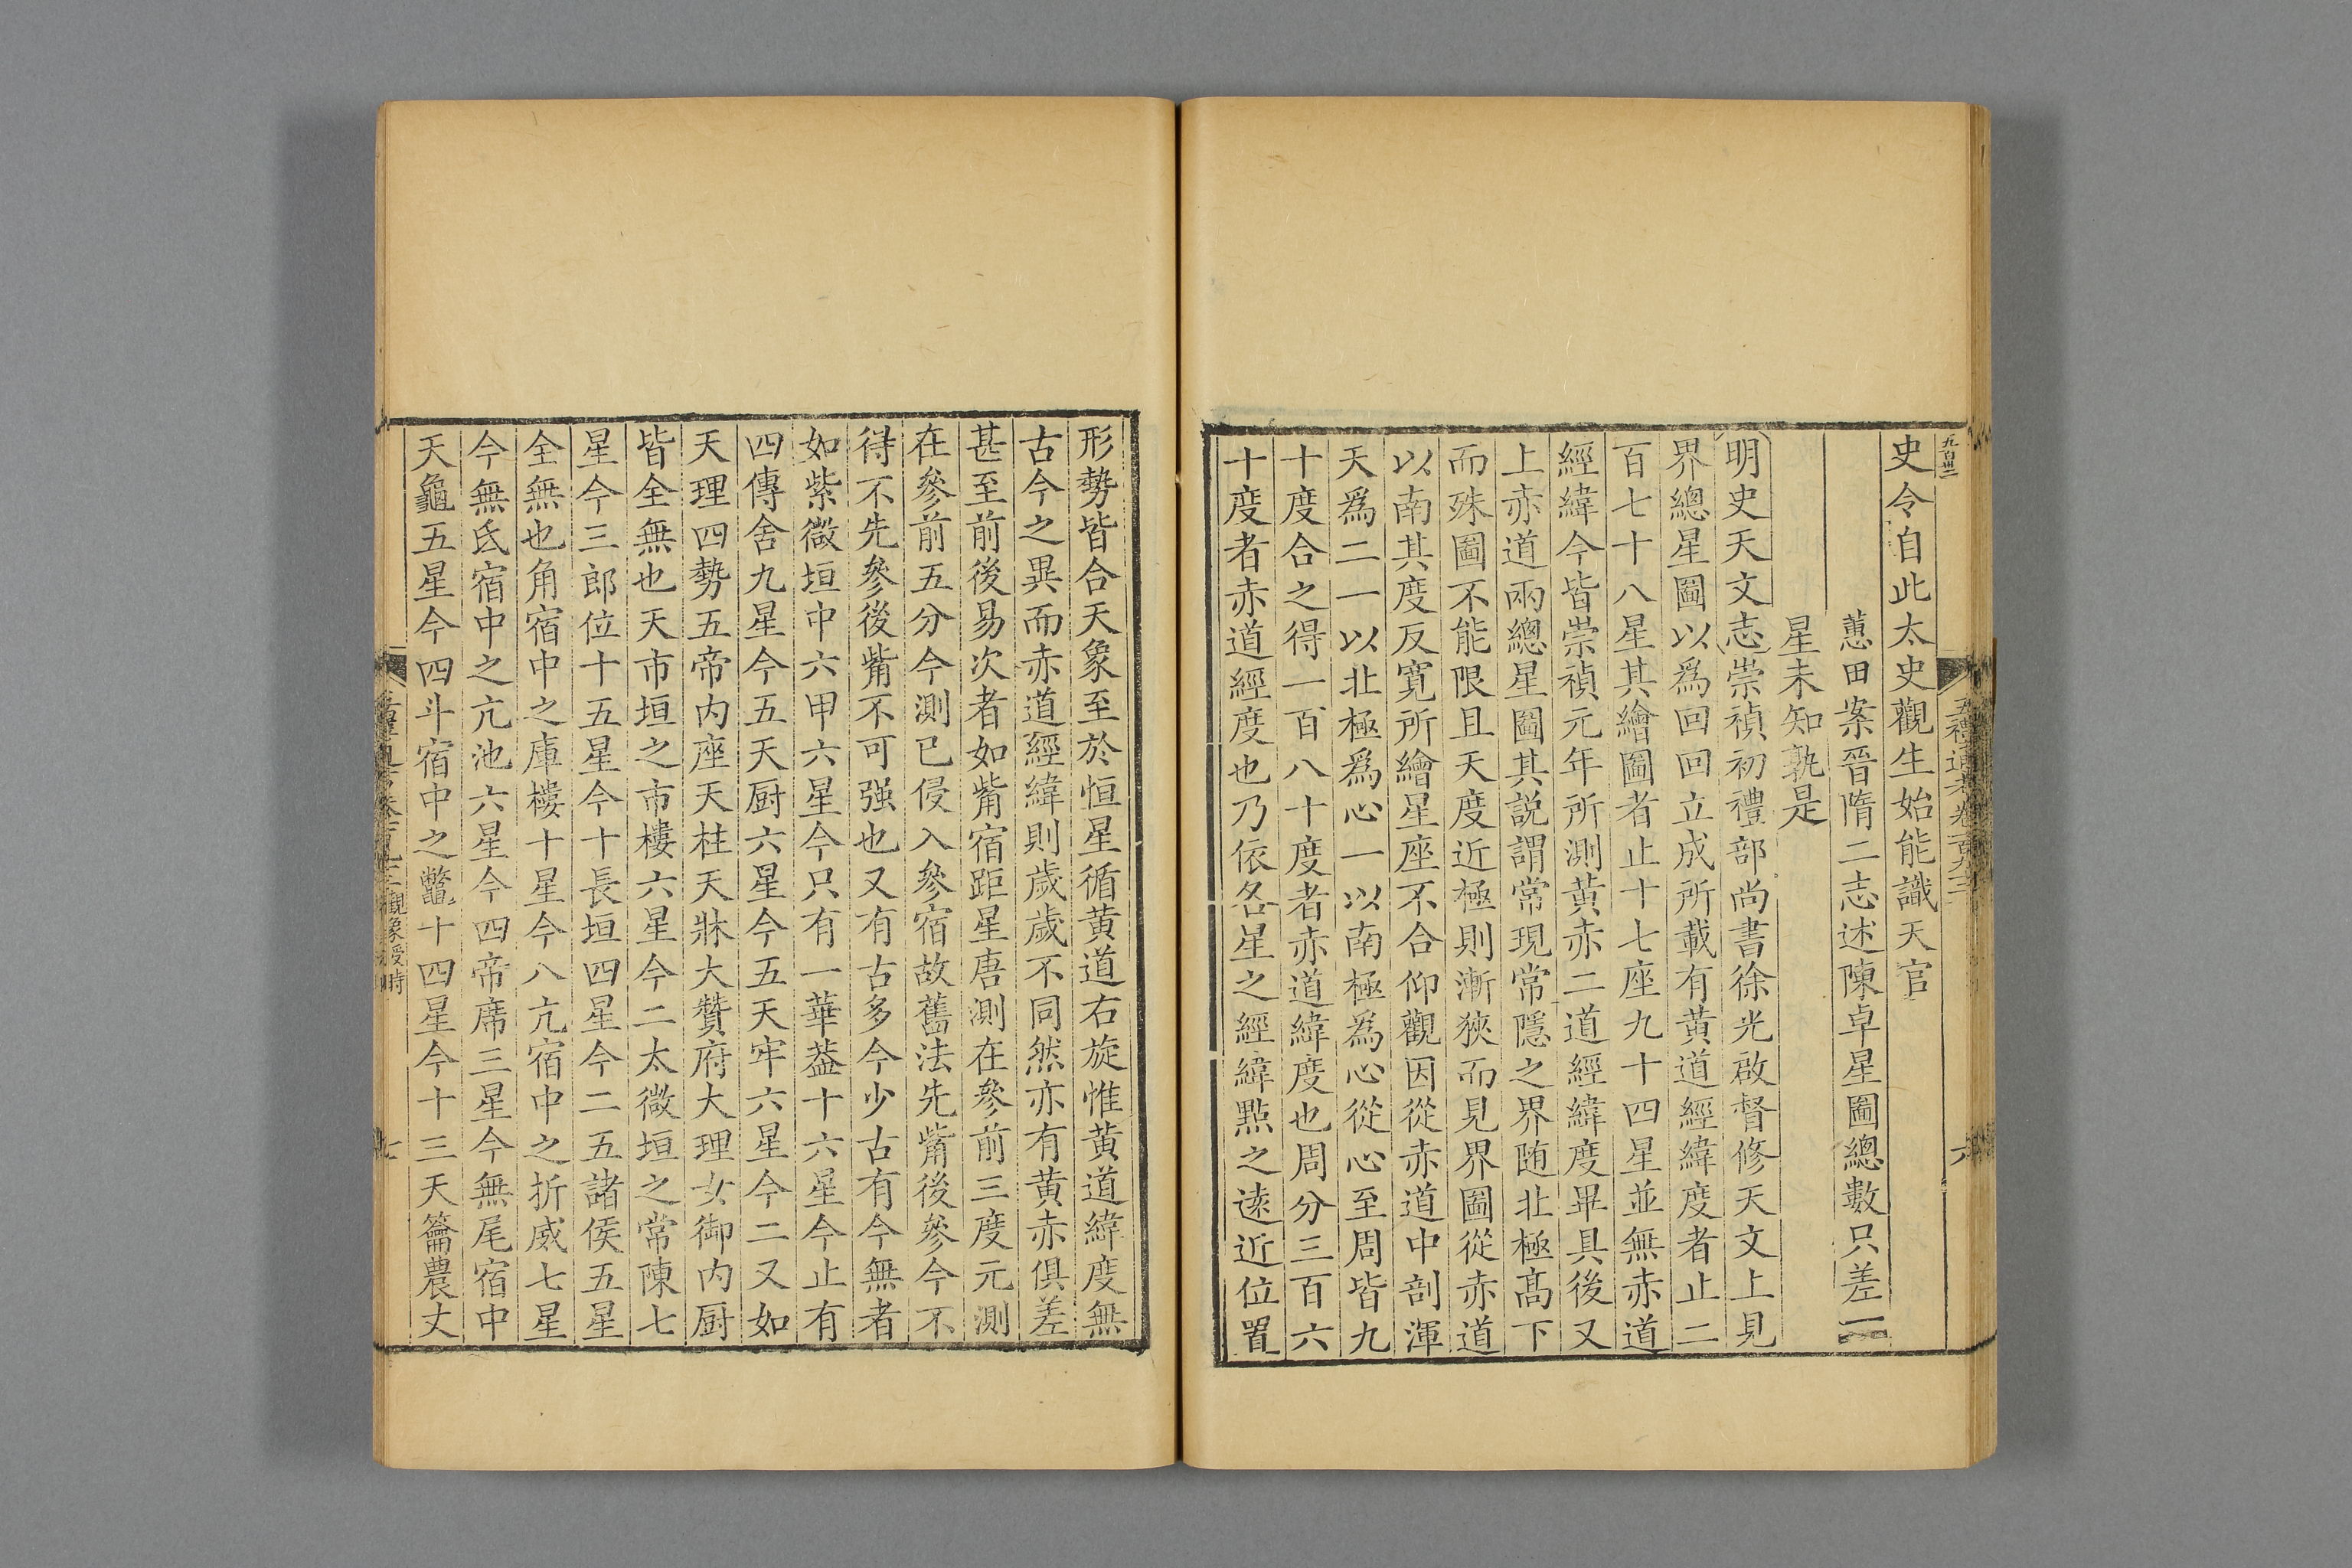 九百卅二
五禮通考卷一百九十三
六
史令自此太史觀生始能識天官
蕙田案晉隋二志述陳卓星圖總數只差一
星未知孰是
明史天文志崇禎初禮部尚書徐光啟督修天文上見
界總星圖以爲回回立成所載有黃道經緯度者止二
百七十八星其繪圖者止十七座九十四星並無赤道
經緯今皆崇禎元年所測黃赤二道經緯度畢具後又
上赤道兩總星圖其説謂常現常隱之界随北極高下
而殊圖不能限且天度近極則漸狹而見界圖從赤道
以南其度反寛所繪星座不合仰觀因從赤道中剖渾
天爲二一以北極爲心一以南極爲心從心至周皆九
十度合之得一百八十度者赤道緯度也周分三百六
十度者赤道經度也乃依各星之經緯點之遠近位置
形勢皆合天象至於恒星循黃道右旋惟黃道緯度無
古今之異而赤道經緯則歲歲不同然亦有黃赤俱差
甚至前後易次者如觜宿距星唐測在參前三度元測
在參前五分今測已侵入參宿故舊法先觜後參今不
得不先參後觜不可强也又有古多今少古有今無者
如紫微垣中六甲六星今只有一華葢十六星今止有
四傳舍九星今五天厨六星今五天牢六星今二又如
天理四勢五帝内座天柱天牀大贊府大理女御内厨
皆全無也天市垣之市樓六星今二太微垣之常陳七
星今三郎位十五星今十長垣四星今二五諸侯五星
全無也角宿中之庫樓十星今八亢宿中之折威七星
今無氐宿中之亢池六星今四帝席三星今無尾宿中
天龜五星今四斗宿中之鼈十四星今十三天籥農丈
觀象授時
七